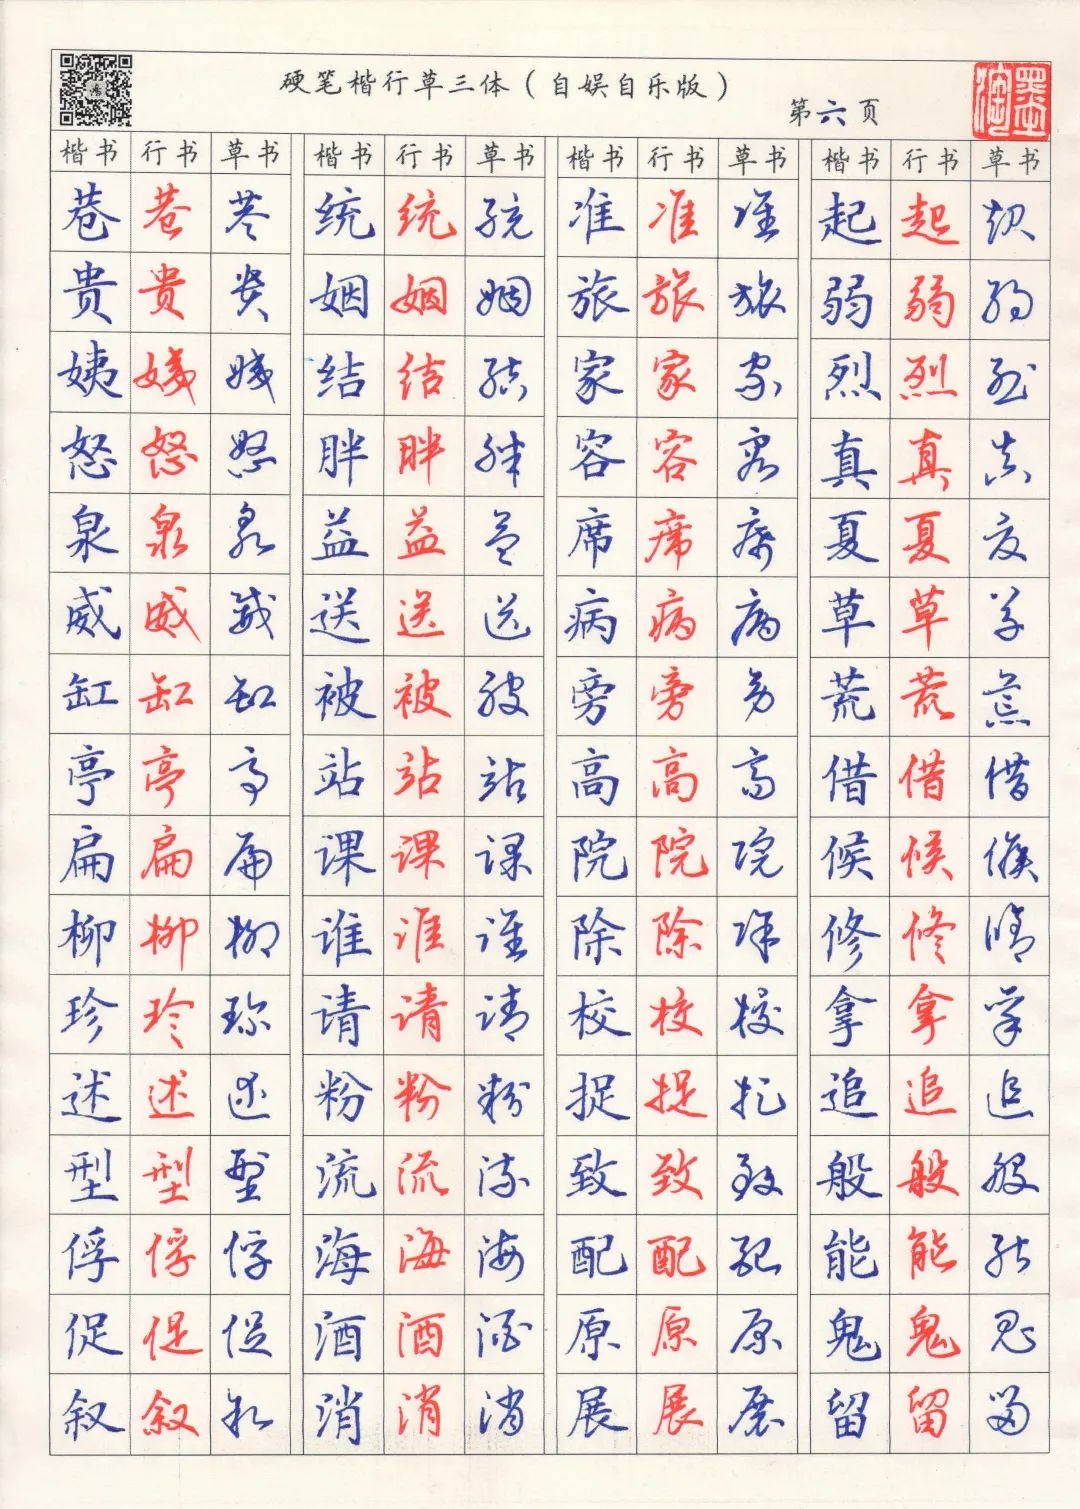 硬笔楷行草三体（自娱自乐版）
第六页
楷书 行书 草书 楷书 行书 草书 楷书 行书 草书 楷书 行书 草书
巷 巷 巷 统 统 统 准 准 准 起 起 起
贵 贵 贵 姻 姻 姻 旅 旅 旅 弱 弱 弱
姨 姨 姨 结 结 结 家 家 家 烈 烈 烈
怒 怒 怒 胖 胖 胖 容 容 容 真 真 真
泉 泉 泉 益 益 益 席 席 席 夏 夏 夏
威 威 威 送 送 送 病 病 病 草 草 草
缸 缸 缸 被 被 被 旁 旁 旁 荒 荒 荒
亭 亭 亭 站 站 站 高 高 高 借 借 借
扁 扁 扁 课 课 课 院 院 院 候 候 候
柳 柳 柳 谁 谁 谁 除 除 除 修 修 修
珍 珍 珍 请 请 请 校 校 校 拿 拿 拿
述 述 述 粉 粉 粉 捉 捉 捉 追 追 追
型 型 型 流 流 流 致 致 致 般 般 般
俘 俘 俘 海 海 海 配 配 配 能 能 能
促 促 促 酒 酒 酒 原 原 原 鬼 鬼 鬼
叙 叙 叙 消 消 消 展 展 展 留 留 留